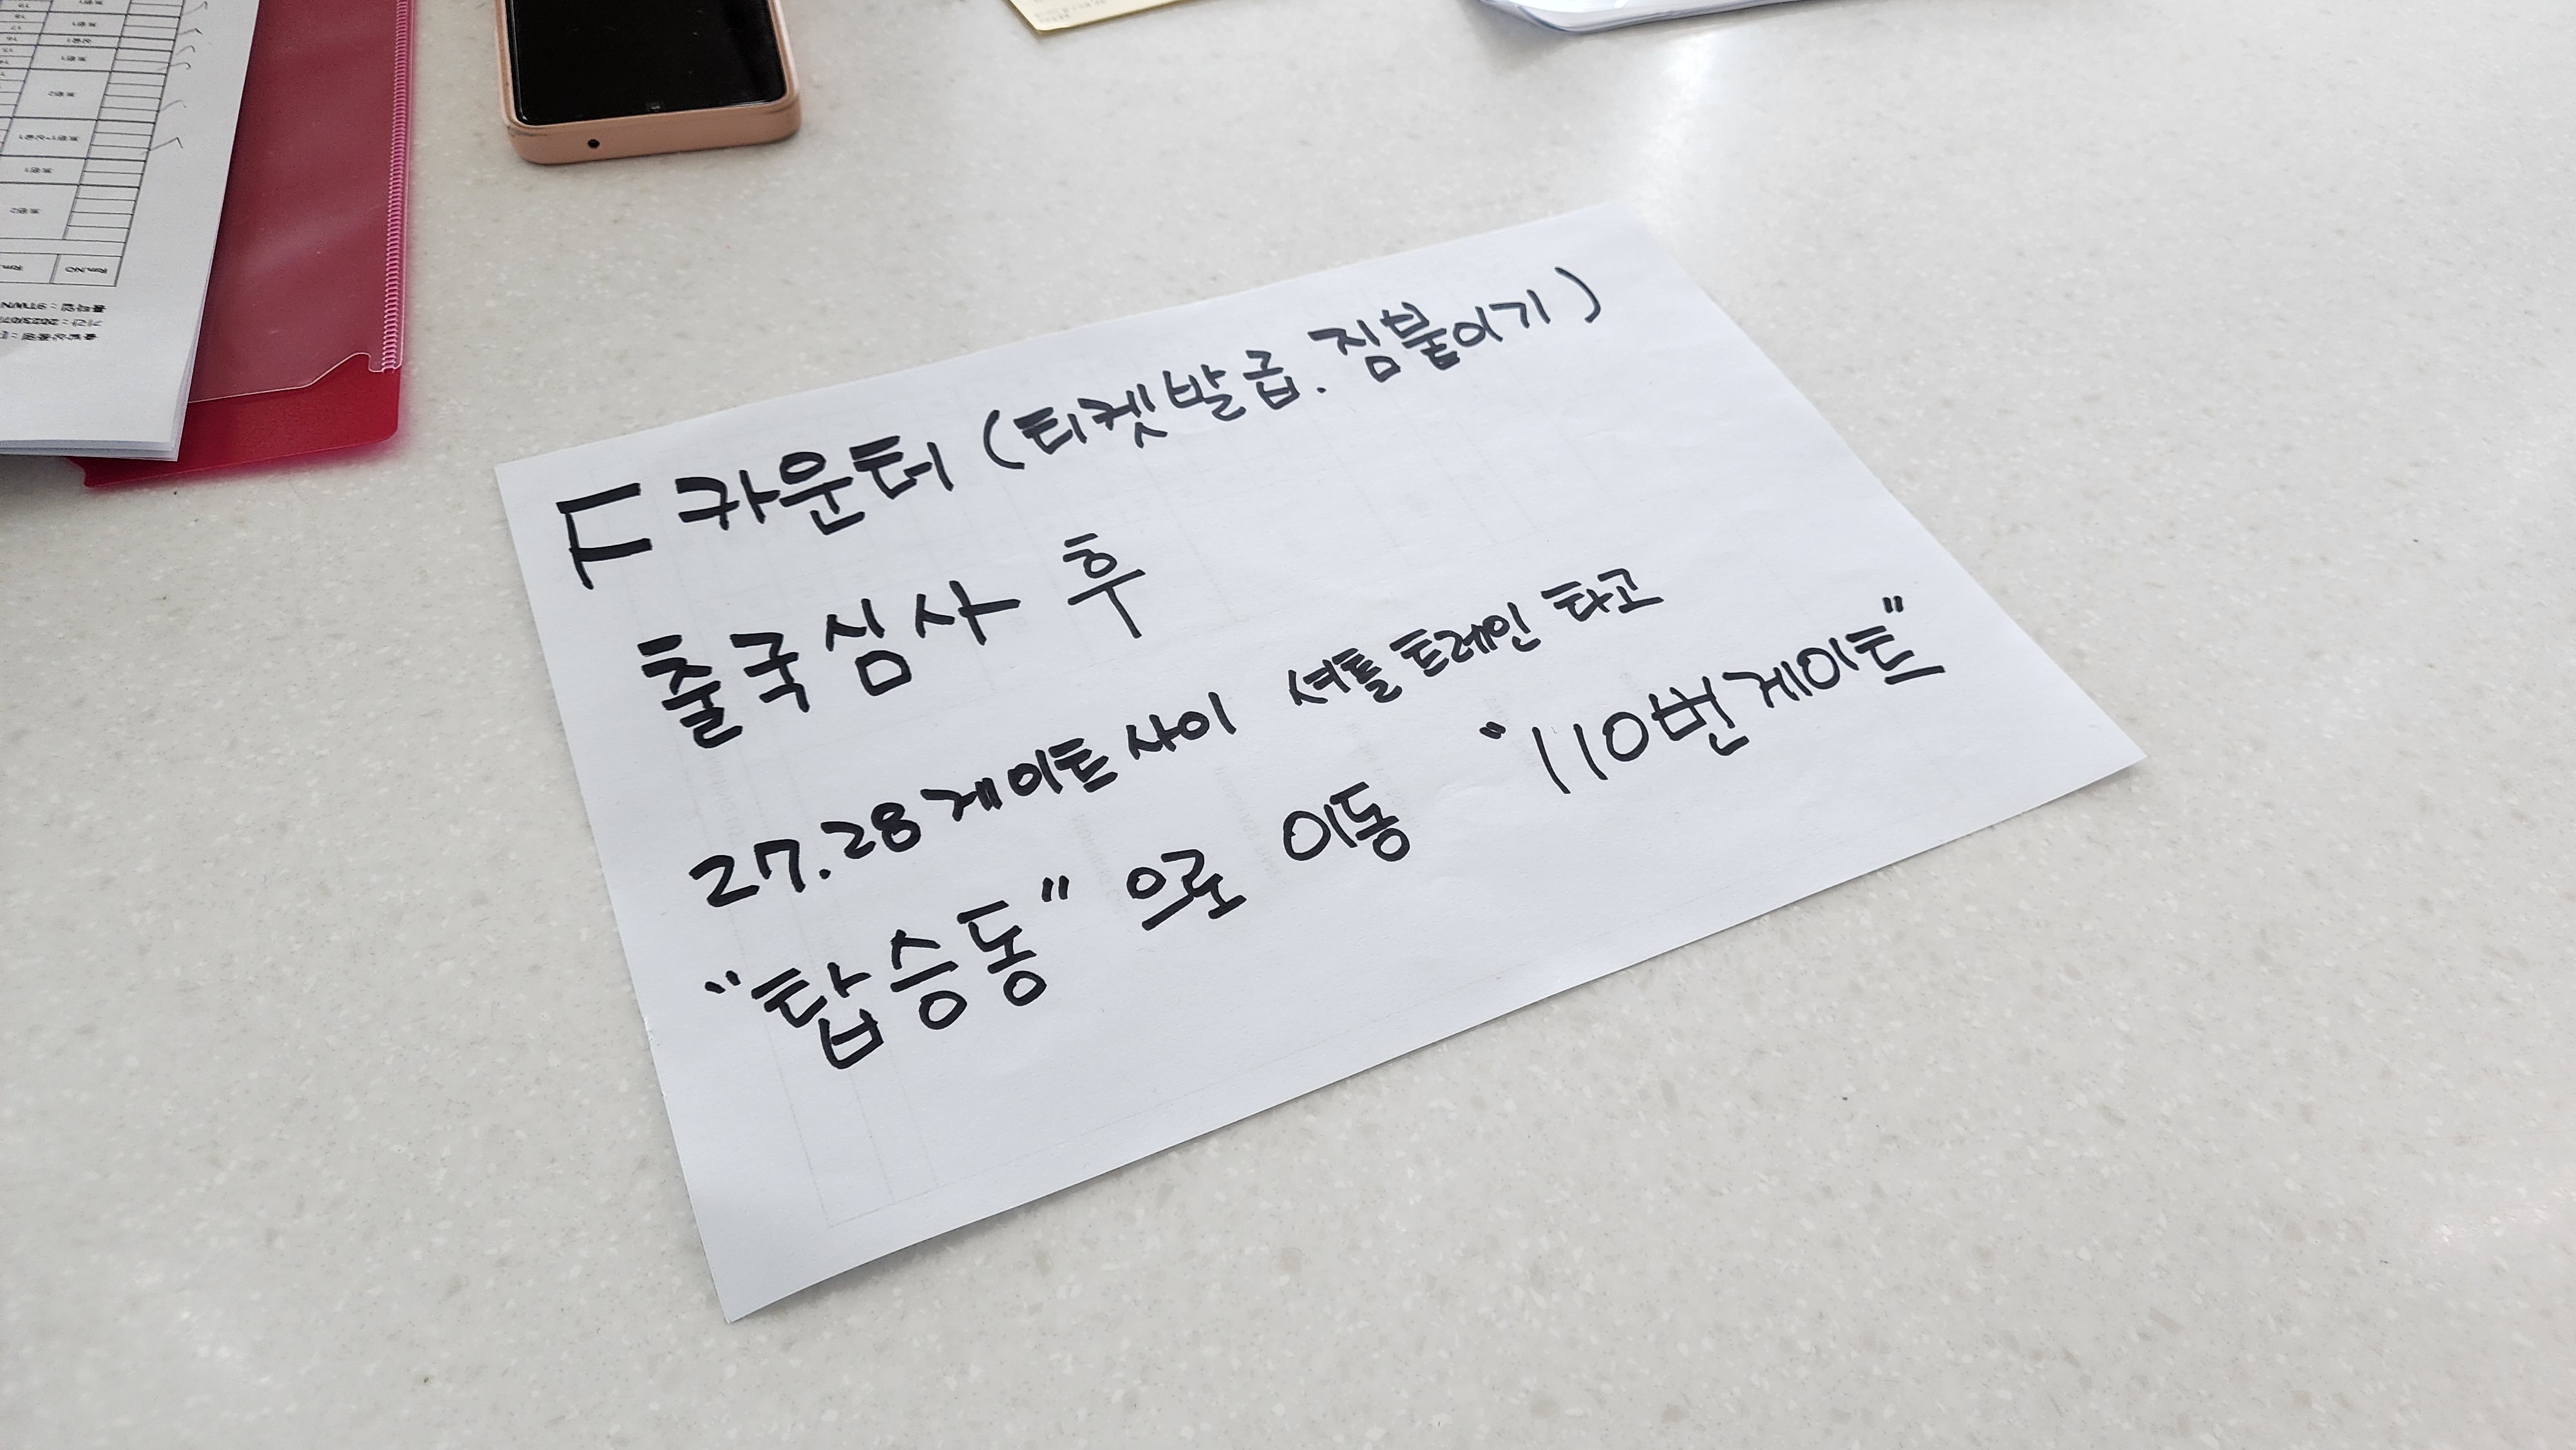 F 카운터 (티켓발급. 짐붙이기)
출국심사 후
27.28게이트 사이 셔틀트레인 타고
"탑승동" 으로 이동 "110번게이트"
Rm.NO